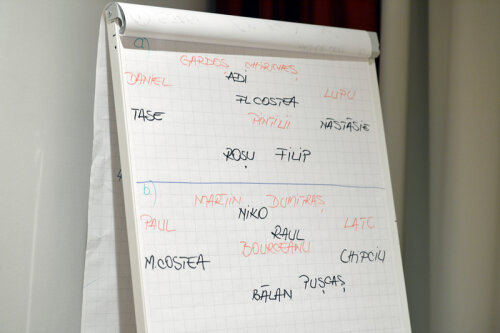 a)
GARDOȘ CHIRICHEȘ
DANIEL ADI LUPU
FL COSTEA
TASE PINTILII NĂSTĂSIE
ROȘU FILIP
b)
MARTIN DUMITRAȘ
PAUL NIKO LATO
RAUL
M.COSTEA BOURCEANU CHIPCIU
BĂLAN PUȘCAȘ